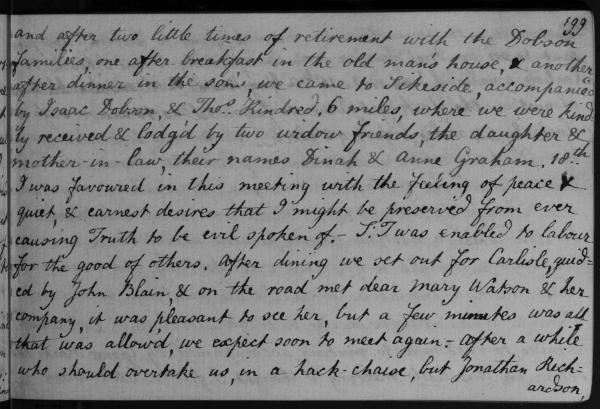 199
and after two little times of retirement with the Dobson
families, one after breakfast in the old man's house, & another
after dinner in the son's, we came to Sikeside, accompanied
by Isaac Dobson, & Thos. Kindred, 6 miles, where we were kind
ly received & lodg'd by two widow friends, the daughter &
mother-in-law, their names Dinah & Anne Graham. 18th
I was favoured in this meeting with the feeling of peace &
quiet, & earnest desires that I might be preserved from ever
causing Truth to be evil spoken of. - S. T was enabled to labour
for the good of others. After dining we set out for Carlisle, guid=
ed by John Blain, & on the road met dear Mary Watson & her
company, it was pleasant to see her, but a few minutes was all
that was allow'd, we expect soon to meet again. - After a while
who should overtake us, in a hack-chaise, but Jonathan Rich-
ardson,